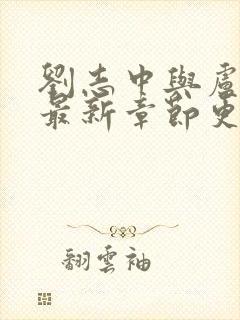 劉志中與盧
最新章節史
翻雲袖